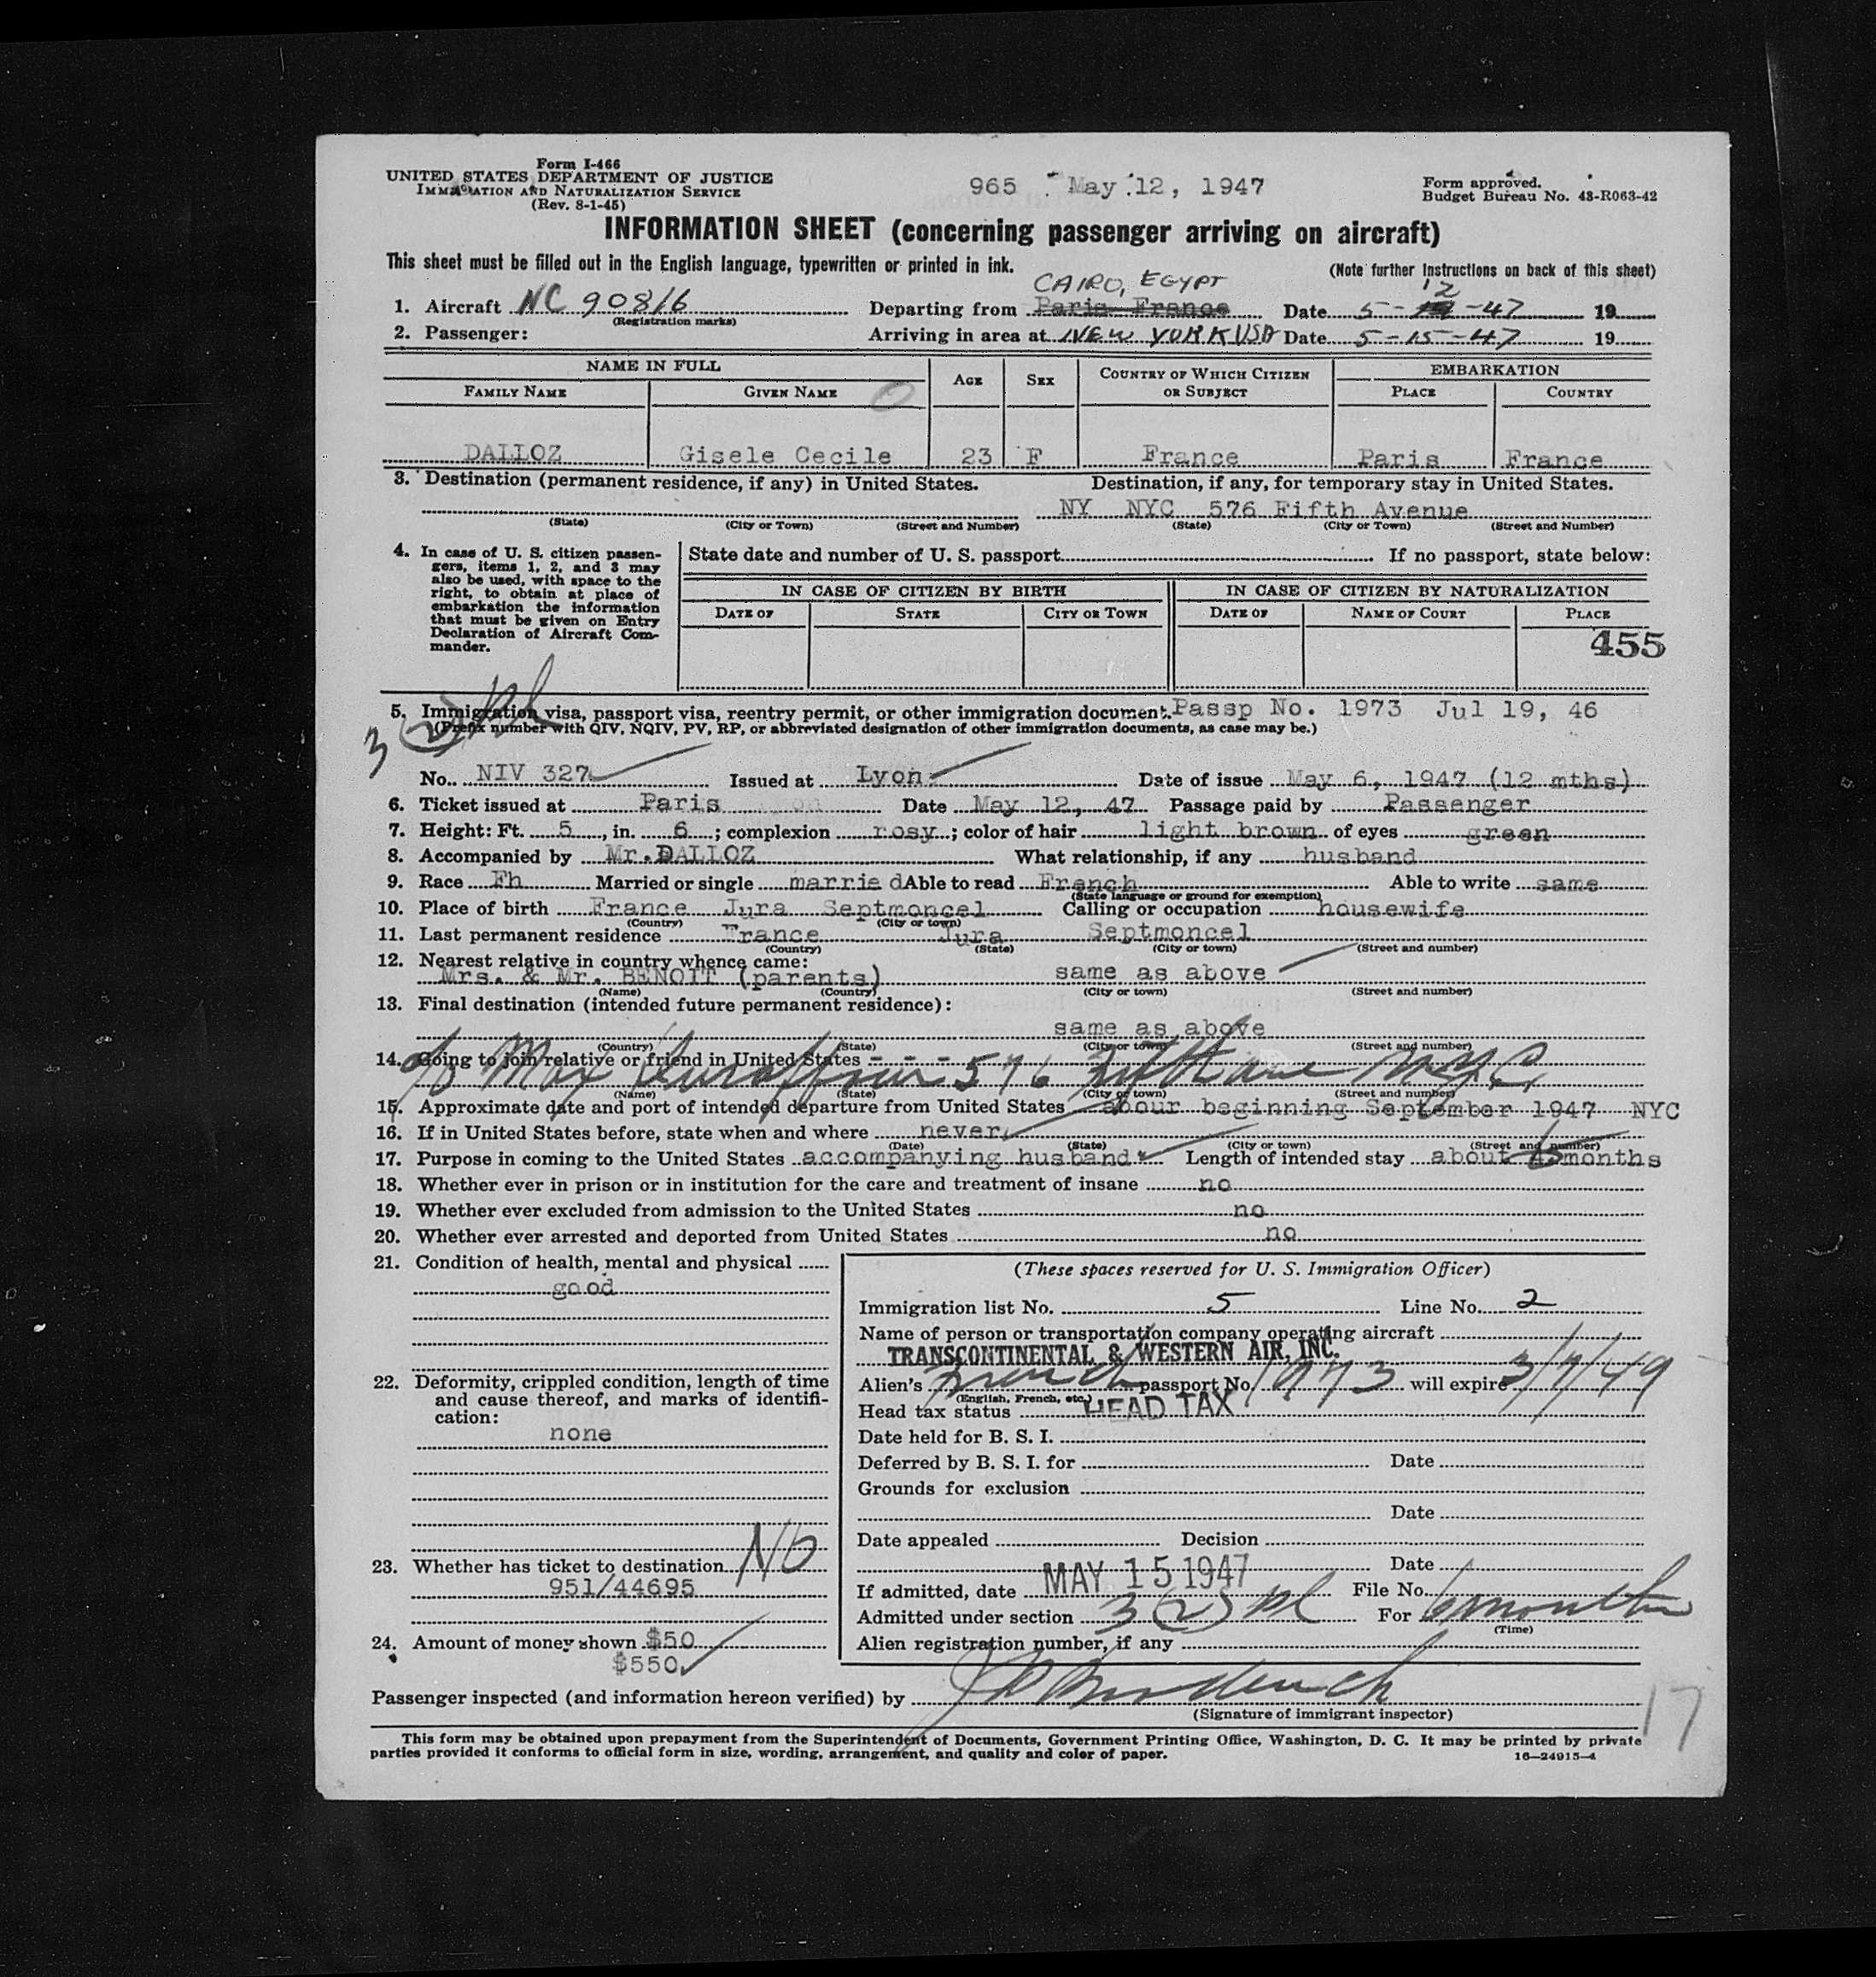 Form I-466
UNITED STATES DEPARTMENT OF JUSTICE
IMMIGRATION AND NATURALIZATION SERVICE
(Rev. 8-1-45)
965 May 12, 1947
Form approved.
Budget Bureau No. 43-R063-42
INFORMATION SHEET (concerning passenger arriving on aircraft)
This sheet must be filled out in the English language, typewritten or printed in ink.
(Note further instructions on back of this sheet)
CAIRO, EGYPT
12
1. Aircraft NC 90816 Departing from Paris France Date 5- -47 19
(Registration marks)
2. Passenger: Arriving in area at NEW YORK USA Date 5-15-47 19
NAME IN FULL AGE SEX COUNTRY OF WHICH CITIZEN OR SUBJECT EMBARKATION
FAMILY NAME GIVEN NAME PLACE COUNTRY
DALLOZ Gisele Cecile 23 F France Paris France
3. Destination (permanent residence, if any) in United States. Destination, if any, for temporary stay in United States.
NY NYC 576 Fifth Avenue
(State) (City or Town) (Street and Number) (State) (City or Town) (Street and Number)
4. In case of U. S. citizen passen-
gers, items 1, 2, and 3 may
also be used, with space to the
right, to obtain at place of
embarkation the information
that must be given on Entry
Declaration of Aircraft Com-
mander.
State date and number of U. S. passport If no passport, state below:
IN CASE OF CITIZEN BY BIRTH IN CASE OF CITIZEN BY NATURALIZATION
DATE OF STATE CITY OR TOWN DATE OF NAME OF COURT PLACE
455
5. Immigration visa, passport visa, reentry permit, or other immigration document. Passp No. 1973 Jul 19, 46
(Prefix number with QIV, NQIV, PV, RP, or abbreviated designation of other immigration documents, as case may be.)
3 (2)
No. NIV 327 Issued at Lyon Date of issue May 6, 1947 (12 mths)
6. Ticket issued at Paris Date May 12, 47 Passage paid by Passenger
7. Height: Ft. 5, in. 6; complexion rosy; color of hair light brown of eyes green
8. Accompanied by Mr. DALLOZ What relationship, if any husband
9. Race Fh Married or single married Able to read French Able to write same
(State language or ground for exemption)
10. Place of birth France Jura Septmoncel Calling or occupation housewife
(Country) (City or town)
11. Last permanent residence France Jura Septmoncel
(Country) (State) (City or town) (Street and number)
12. Nearest relative in country whence came:
Mrs. & Mr. BENOIT (parents) same as above
(Name) (Country) (City or town) (Street and number)
13. Final destination (intended future permanent residence):
same as above
(Country) (State) (City or town) (Street and number)
14. Going to join relative or friend in United States - - -
c/o Max 576 Fifth ave NYC
(Name) (State) (City or town) (Street and number)
15. Approximate date and port of intended departure from United States abour beginning September 1947 NYC
16. If in United States before, state when and where never
(Date) (State) (City or town) (Street and number)
17. Purpose in coming to the United States accompanying husband Length of intended stay about months
18. Whether ever in prison or in institution for the care and treatment of insane no
19. Whether ever excluded from admission to the United States no
20. Whether ever arrested and deported from United States no
21. Condition of health, mental and physical
good
22. Deformity, crippled condition, length of time
and cause thereof, and marks of identifi-
cation:
none
23. Whether has ticket to destination NO
951/44695
24. Amount of money shown $50
$550
(These spaces reserved for U. S. Immigration Officer)
Immigration list No. 5 Line No. 2
Name of person or transportation company operating aircraft
TRANSCONTINENTAL & WESTERN AIR, INC.
Alien's French passport No. 1973 will expire 3/7/49
(English, French, etc.)
Head tax status HEAD TAX
Date held for B. S. I.
Deferred by B. S. I. for Date
Grounds for exclusion
Date
Date appealed Decision
Date
If admitted, date MAY 15 1947 File No.
Admitted under section 3 (2) For 6 months
(Time)
Alien registration number, if any
Passenger inspected (and information hereon verified) by
(Signature of immigrant inspector)
17
This form may be obtained upon prepayment from the Superintendent of Documents, Government Printing Office, Washington, D. C. It may be printed by private
parties provided it conforms to official form in size, wording, arrangement, and quality and color of paper. 16—24915-4